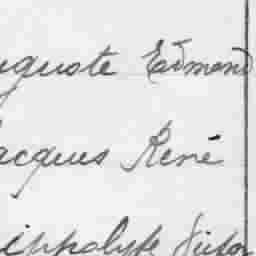 uguste Edmond
acques René
ippolyte Victor